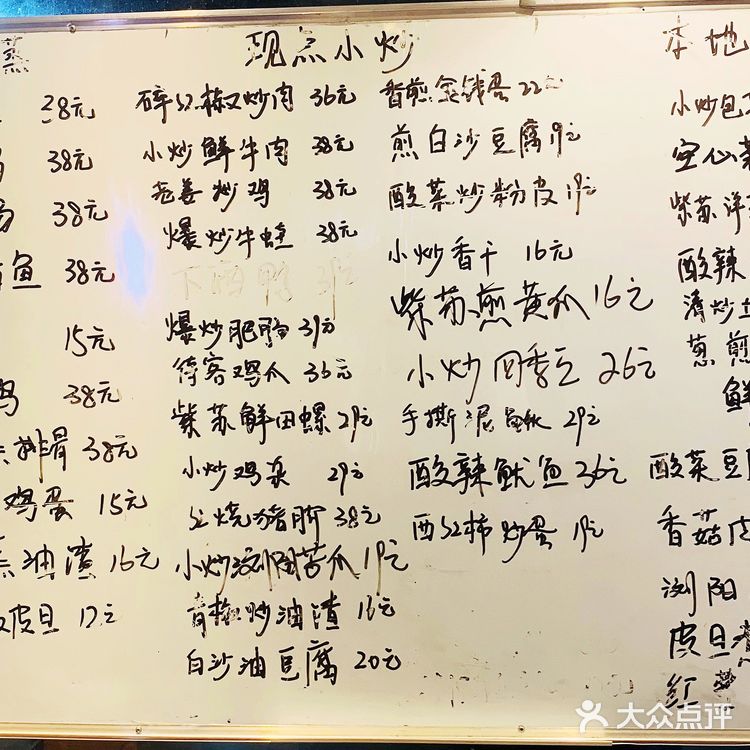 蒸
38元
38元
38元
鱼 38元
15元
38元
排骨 38元
鸡蛋 15元
油渣 16元
皮旦 12元
现点小炒
碎红椒炒肉 36元
小炒鲜牛肉 38元
老姜炒鸡 38元
爆炒牛蛙 38元
爆炒肥肠 39元
待客鸡爪 36元
紫苏鲜田螺 29元
小炒鸡杂 29元
红烧猪脚 38元
小炒浏阳苦瓜 19元
青椒炒油渣 16元
白沙油豆腐 20元
香煎金钱蛋 22元
煎白沙豆腐 19元
酸菜炒粉皮 19元
小炒香干 16元
紫苏煎黄瓜 16元
小炒四季豆 26元
手撕泥鳅 29元
酸辣鱿鱼 36元
西红柿炒蛋 19元
本地
小炒包
空心菜
紫苏洋
酸辣
清炒
葱煎
鲜
酸菜豆
香菇
浏阳
皮旦
红薯
大众点评